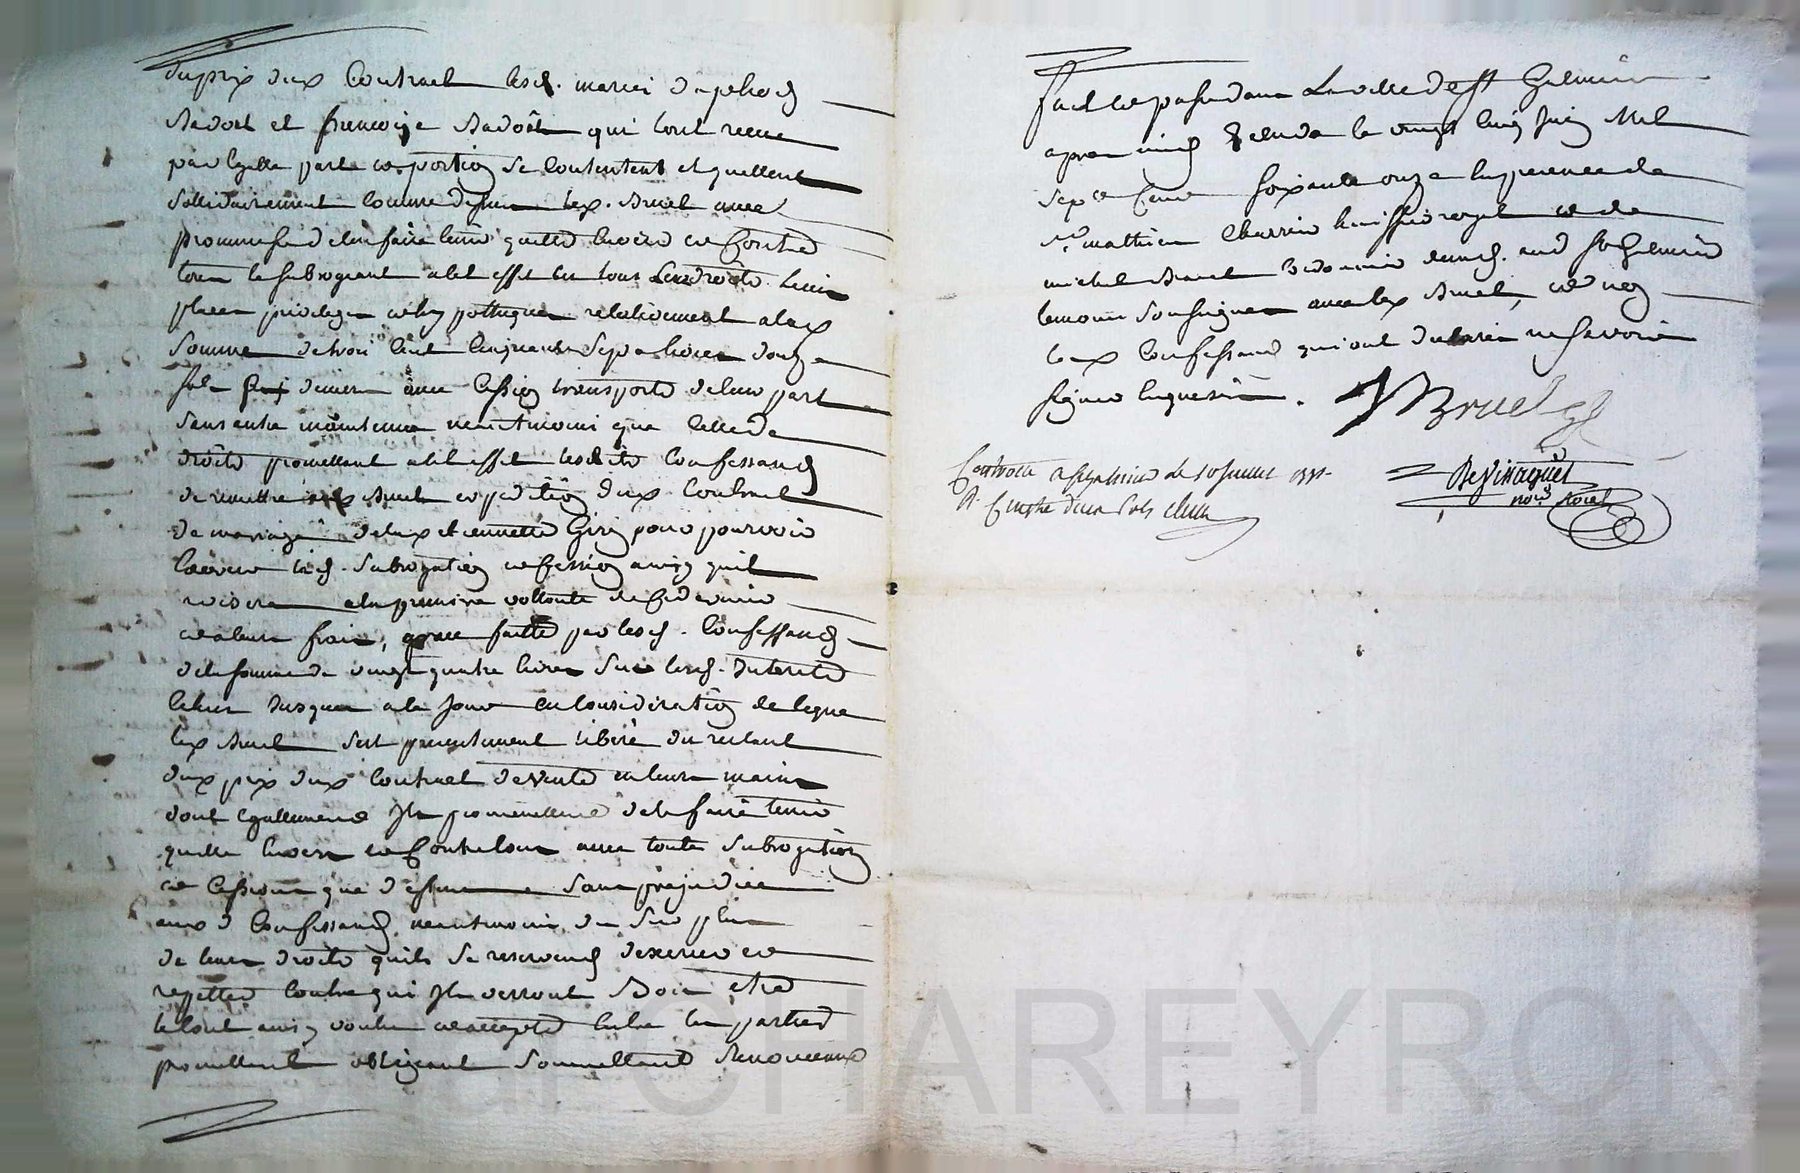 du prix dud contract lesd. mariés
Badost et francoise Badost qui tout receu
par egalle part et portion se contentent et quittent
sollidairement comme dessus led. Bruel avec
promesse de len faire tenir quitte envers et contre
tous le subrogeant a cet effet en tous les droits lieu
place privilege et hypotheque relativement a lad
somme de trois cent cinquante sept livres douze
sols deniers avec cession transporte de leur part
sans autre maintenue neantmoins que celle de
droits promettant a cet effet lesdits confessants
de remettre aud Bruel expedition dud contract
de mariage delad et ennette Giry pour pouvoir
exercer lad. subrogation et cession ainsy quil
avisera a la premiere vollonté de ce dernier
et a leurs frais, grace faitte par lesd. confessants
de la somme de vingt quatre livres sur lesd. interets
echus jusques a ce jour en consideration de ce que
led Bruel sest presentement libéré du restant
dud prix dud contract de vente en leurs mains
dont egallement ils promettent de le faire tenir
quitte envers et contre tous avec toute subrogation
et cession que dessus sans prejudice
aux d confessants neantmoins du surplus
de leurs droits quils se reservent dexercer et
rejetter contre qui ils verront Bon etre
le tout ainsy voulu et accepté entre les parties
promettant obligeant soumettant Renonceant
fait et passé dans la ville de st Galmier
apres midy le vingt cinq juin Mil
sept cent soixante onze en presence de
sr. mathieu Charrin huissier royal et de
michel Bruel cordonnier dud. st Galmier
temoins soussignes avec led Bruel, et non
lesd confessants qui ont declaré ne savoir
signer enquis
MBruel
Controllé a st galmier le 10 juillet 1771
R. douze sols
DeVissaguet
nore Royal
CHAREYRON